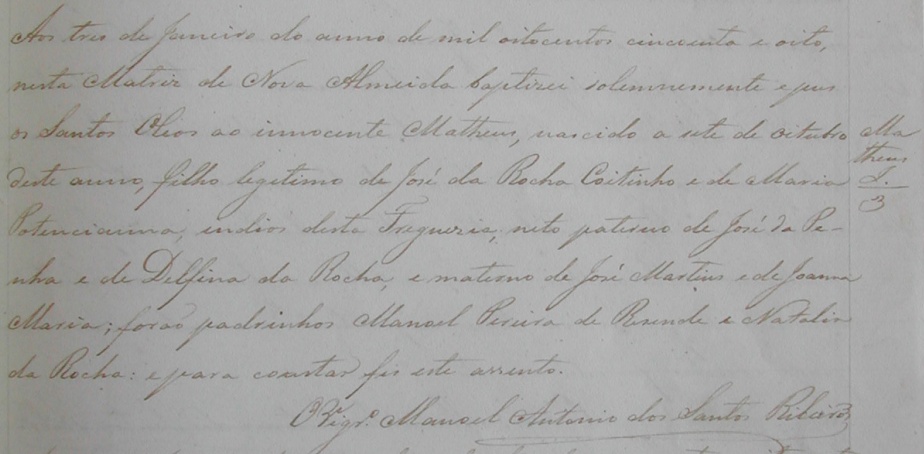 Aos tres de Janeiro do anno de mil oitocentos cincoenta e oito,
nesta Matriz de Nova Almeida baptizei solemnemente e pus
os Santos Oleos ao innocente Matheus, nascido a sete de oitubro
deste anno, filho legitimo de José da Rocha Coitinho e de Maria
Potencianna, indios desta Freguezia; neto paterno de José da Pe-
nha e de Delfina da Rocha, e materno de José Martins e de Joanna
Maria; forão padrinhos Manoel Pereira de Resende e Natalia
da Rocha: e para constar fis este assento.
O Vigr.º Manoel Antonio dos Santos Ribeiro
Ma
theus
I.
3